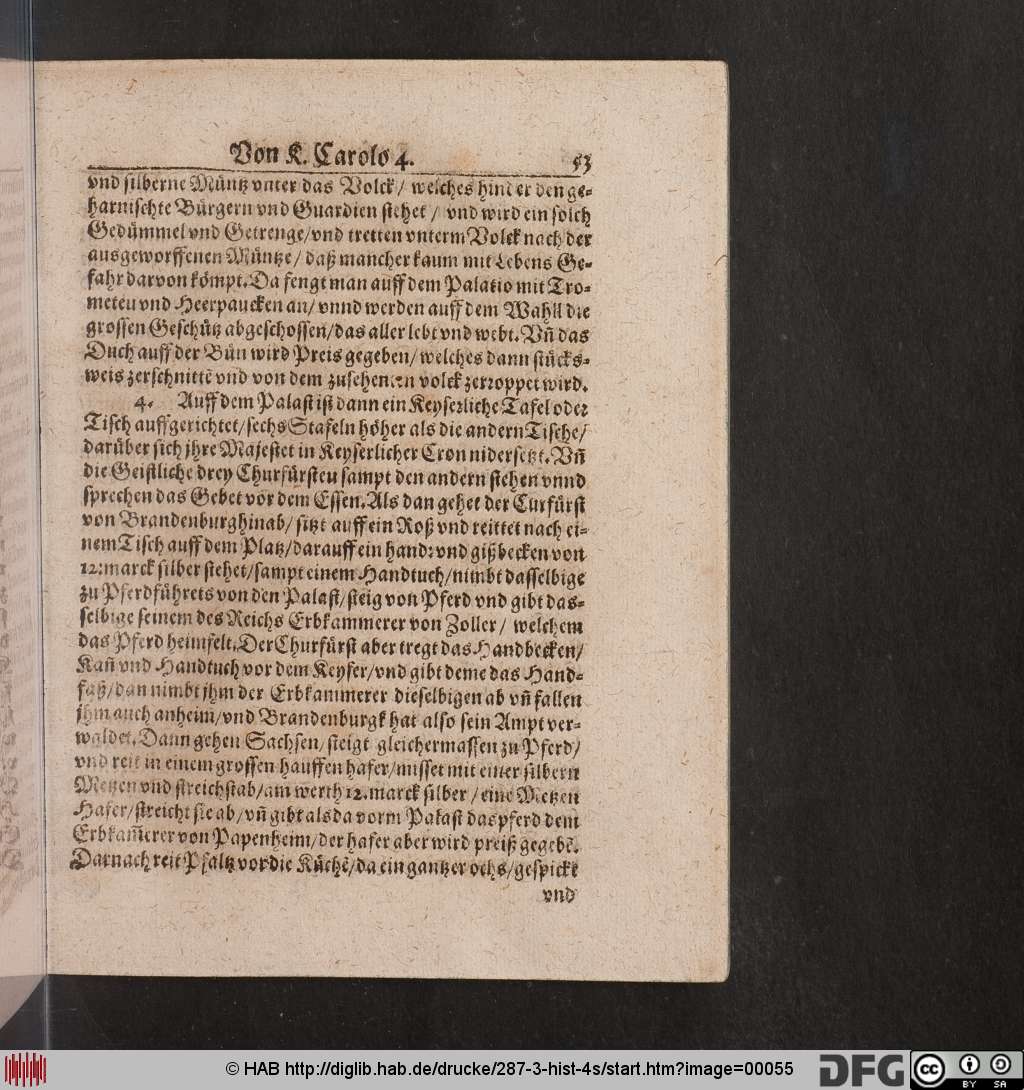 Von K. Carolo 4. 53
vnd silberne Müntz vnter das Volck / welches hinder den ge-
harnischte Bürgern vnd Guardien stehet / vnd wird ein solch
Gedümmel vnd Getrenge/vnd tretten vnterm Volck nach der
ausgeworffenen Müntze/ daß mancher kaum mit Lebens Ge-
fahr darvon kömpt. Da fengt man auff dem Palatio mit Tro-
meteu vnd Heerpaucken an/ vnnd werden auff dem Wahll die
grossen Geschütz abgeschossen/das aller lebt vnd webt. Vñ das
Duch auff der Bün wird Preis gegeben/ welches dann stücks-
weis zerschnittẽ vnd von dem zusehenden volck zerroppet wird.
4. Auff dem Palast ist dann ein Keyserliche Tafel oder
Tisch auffgerichtet/sechs Stafeln höher als die andern Tische/
darüber sich jhre Majestet in Keyserlicher Cron nidersetzt. Vñ
die Geistliche drey Churfürsteu sampt den andern stehen vnnd
sprechen das Gebet vor dem Essen. Als dan gehet der Curfürst
von Brandenburg hinab/ sitzt auff ein Roß vnd reittet nach ei-
nem Tisch auff dem Platz/darauff ein hand: vnd gißbecken von
12: marck silber stehet/sampt einem Handtuch/nimbt dasselbige
zu Pferd führets von den Palast/ steig von Pferd vnd gibt das-
selbige seinem des Reichs Erbkammerer von Zoller/ welchem
das Pferd heimfelt. Der Churfürst aber tregt das Handbecken/
Kañ vnd Handtuch vor dem Keyser/vnd gibt deme das Hand-
faß/dan nimbt jhm der Erbkammerer dieselbigen ab vñ fallen
jhm auch anheim/vnd Brandenburgk hat also sein Ampt ver-
waldet. Dann gehen Sachsen/ steigt gleichermassen zu Pferd/
vnd reit in einem grossen hauffen hafer/misset mit einer silbern
Metzen vnd streichstab/am werth 12. marck silber / eine Metzen
Hafer/streicht sie ab/ vñ gibt als da vorm Palast das pferd dem
Erbkam̃erer von Papenheim/der hafer aber wird preiß gegebẽ.
Darnach reit Pfaltz vor die Küchẽ/da ein gantzer ochs/gespickt
vnd
© HAB http://diglib.hab.de/drucke/287-3-hist-4s/start.htm?image=00055
DFG
cc BY SA